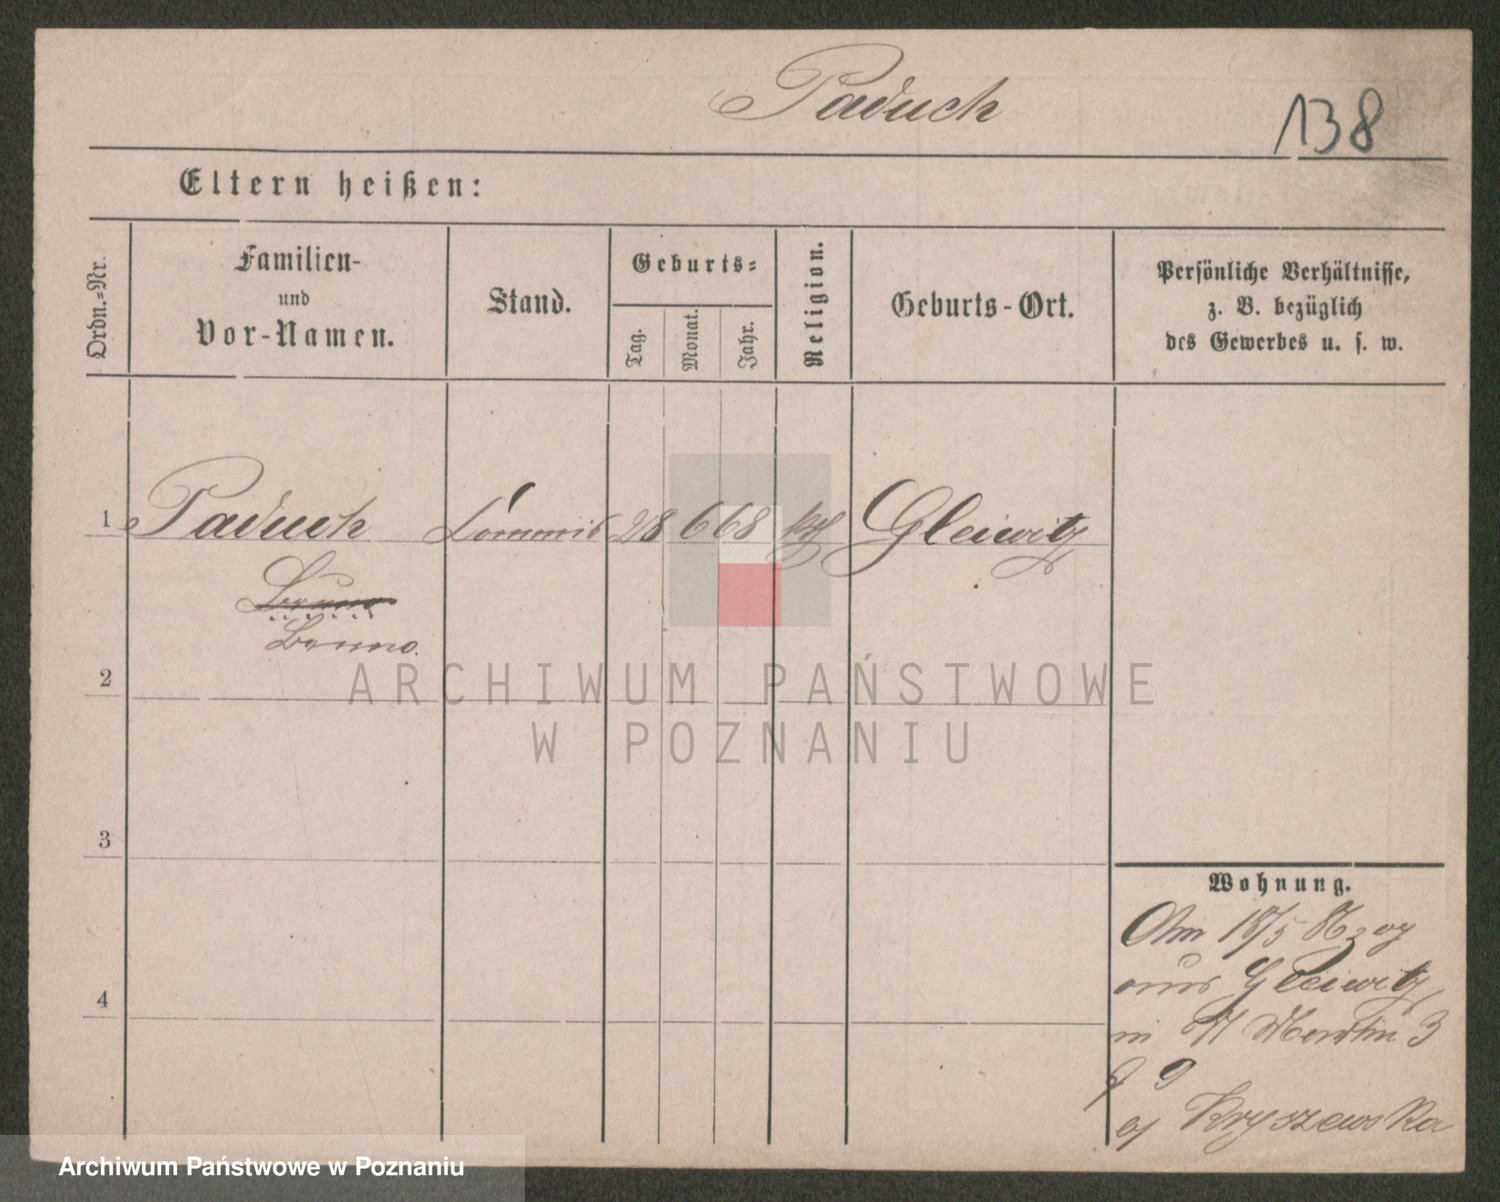 Paduch
138
Eltern heißen:
Ordn.-Nr.
Familien-
und
Vor-Namen.
Stand.
Geburts-
Tag.
Monat.
Jahr.
Religion.
Geburts-Ort.
Persönliche Verhältnisse,
z. B. bezüglich
des Gewerbes u. s. w.
1 Paduch Commis 28 6 68 kth Gleiwitz
Bruno
Benno.
2
3
4
Wohnung.
Am 18/5 zog
aus Gleiwitz
in St Martin 3
9
b/ Kryszewska
ARCHIWUM PAŃSTWOWE
W POZNANIU
Archiwum Państwowe w Poznaniu